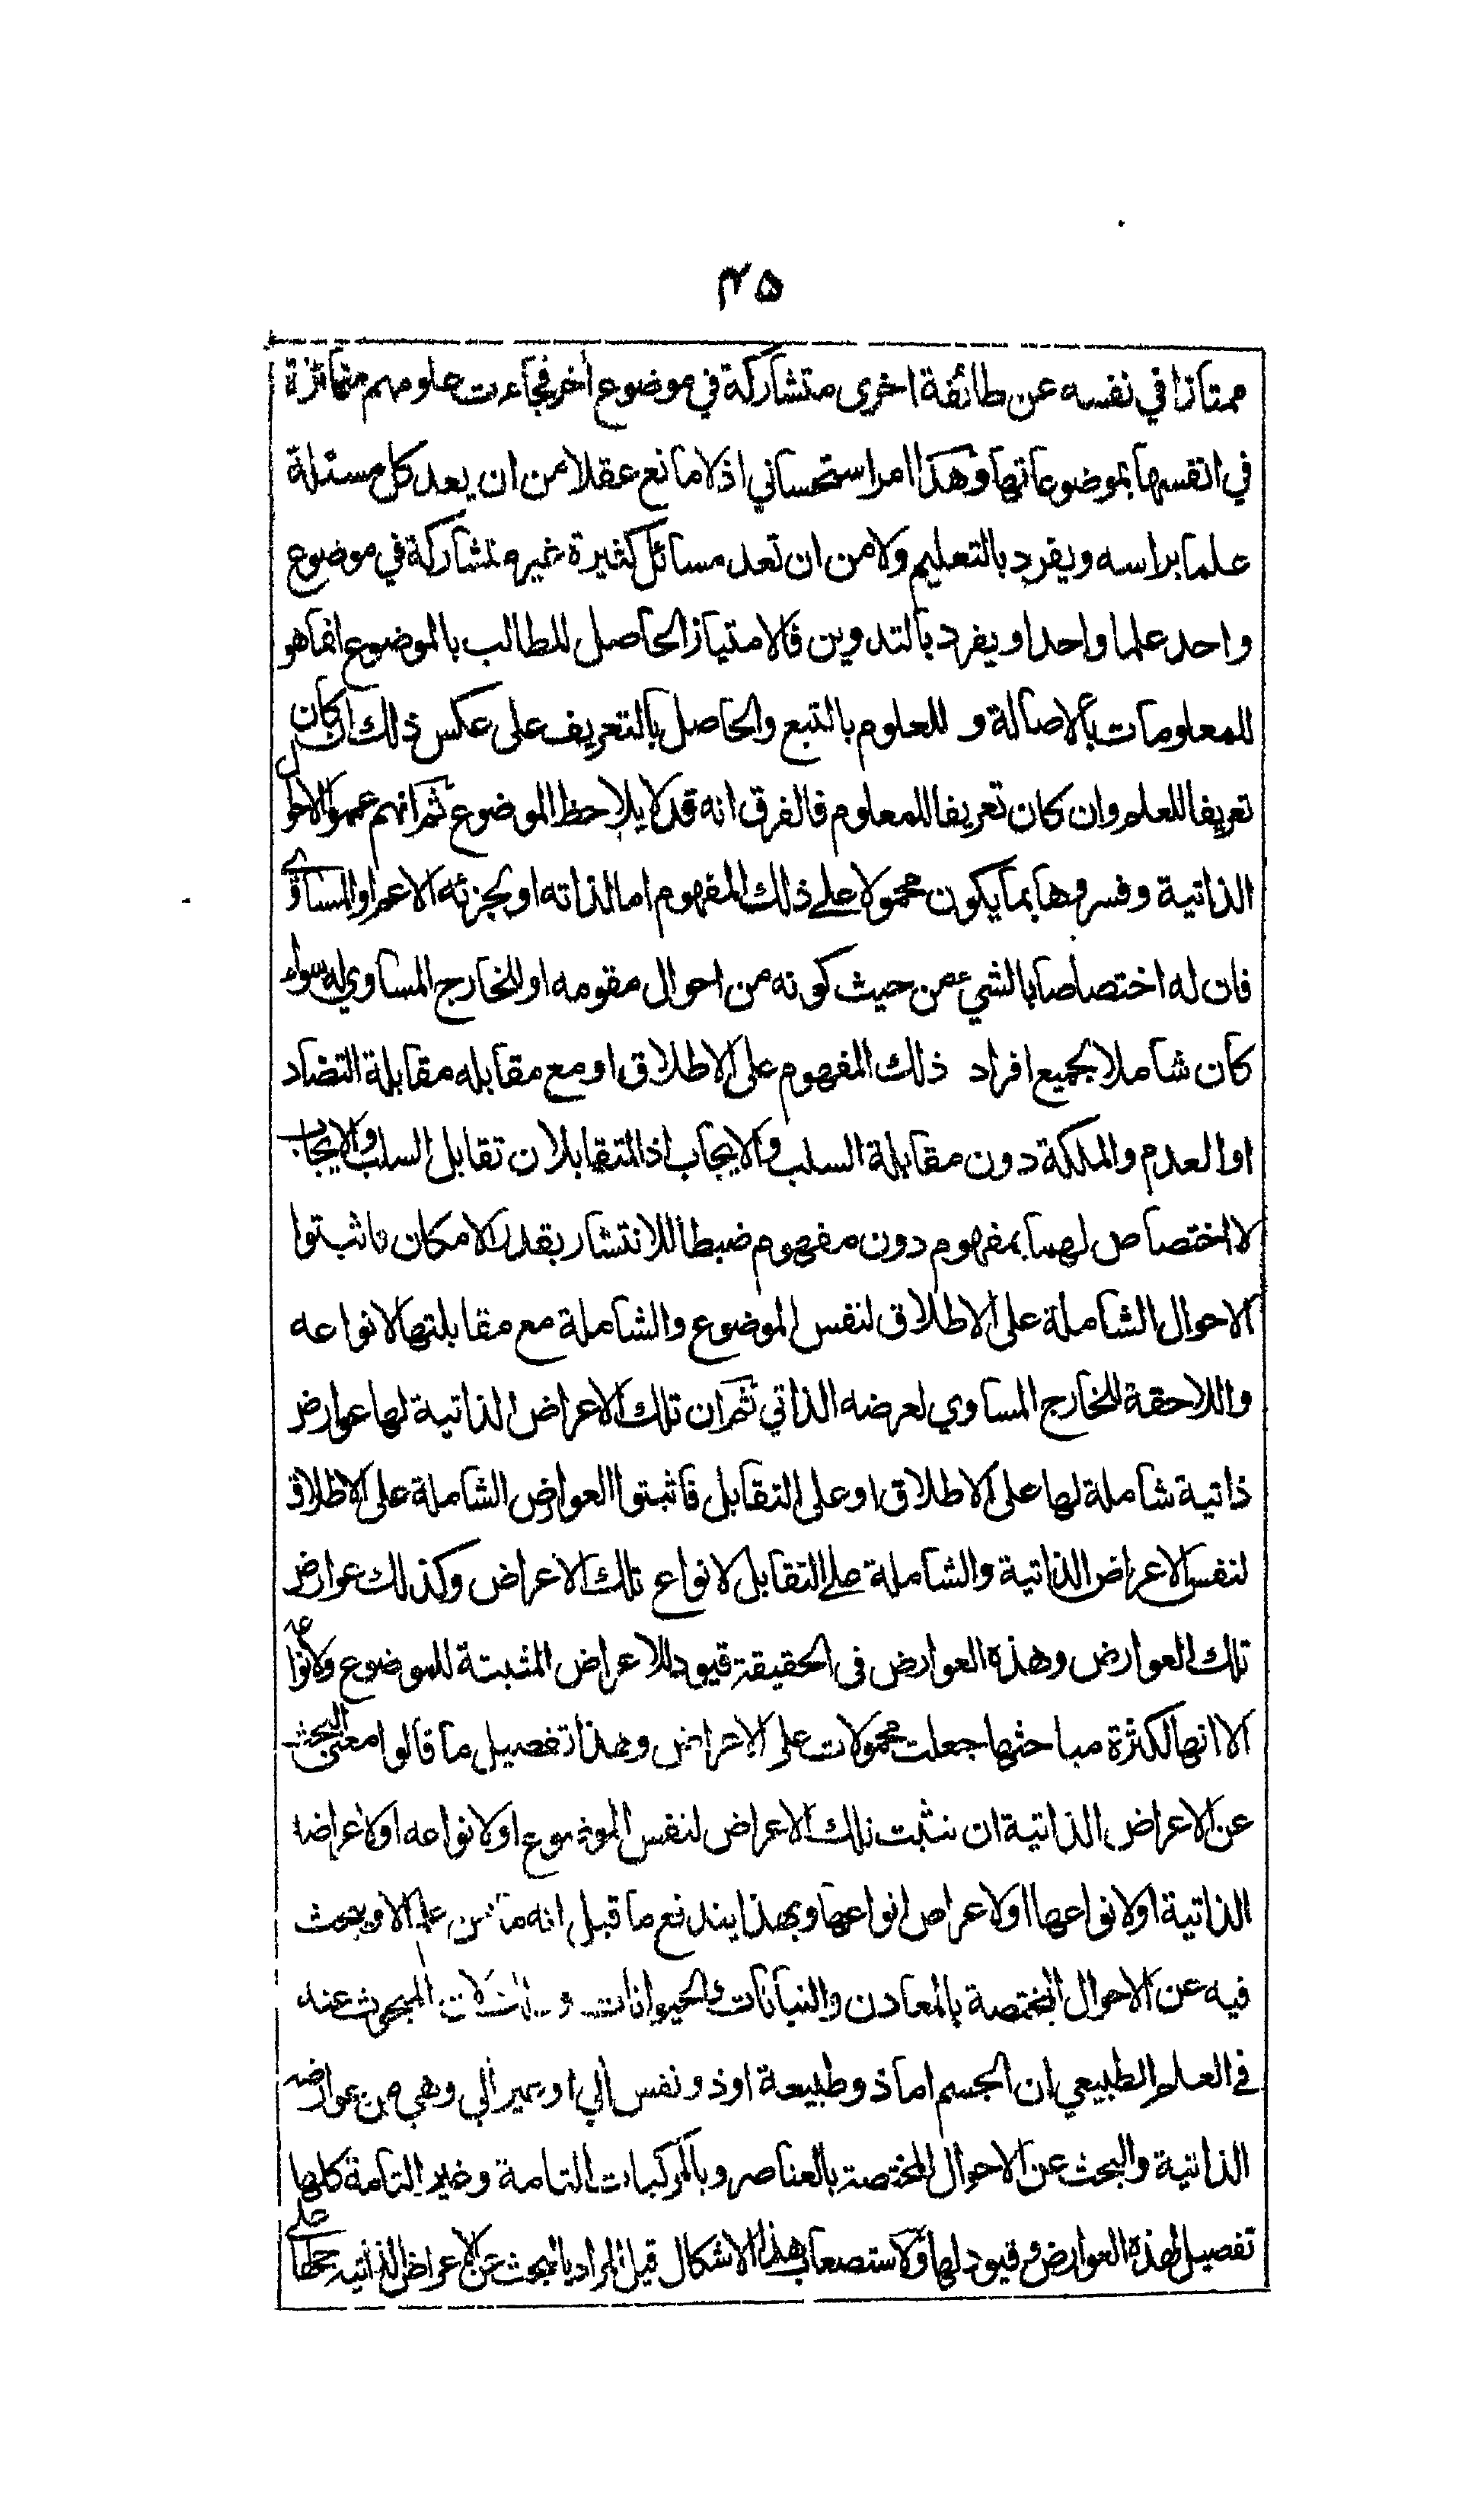 ٤٥
ممتازا في نفسه عن طائفة اخرى متشاركة في موضوع اخر فجاءت علومهم متمائزة
في انفسها بموضوعاتها وهذا امر استحساني اذ لا مانع عقلا من ان يعد كل مسئلة
علما براسه ويفرد بالتعليم ولا من ان تعد مسائل كثيرة غير متشاركة في موضوع
واحد علما واحدا ويفرد بالتدوين فالامتياز الحاصل للطالب بالموضوع انما هو
للمعلومات بالاصالة و للعلوم بالتبع والحاصل بالتعريف على عكس ذلك ان كان
تعريفا للعلم وان كان تعريفا للمعلوم فالفرق انه قد لا يلاحظ الموضوع ثم انهم عمموا الاحوال
الذاتية وفسروها بما يكون محمولا على ذلك المفهوم اما لذاته او لجزئه الاعم او المساوي
فان له اختصاصا بالشيء من حيث كونه من احوال مقومه او للخارج المساوي له سواء
كان شاملا لجميع افراد ذلك المفهوم على الاطلاق او مع مقابله مقابلة التضاد
او العدم والملكة دون مقابلة السلب والايجاب اذ المتقابلان تقابل السلب والايجاب
لا اختصاص لهما بمفهوم دون مفهوم ضبطا للانتشار بقدر الامكان فاثبتوا
الاحوال الشاملة على الاطلاق لنفس الموضوع والشاملة مع مقابلتها لانواعه
واللاحقة للخارج المساوي لعرضه الذاتي ثم ان تلك الاعراض الذاتية لها عوارض
ذاتية شاملة لها على الاطلاق او على التقابل فاثبتوا العوارض الشاملة على الاطلاق
لنفس الاعراض الذاتية والشاملة على التقابل لانواع تلك الاعراض وكذلك عوارض
تلك العوارض وهذه العوارض في الحقيقة قيود للاعراض المثبتة للموضوع ولانواعه
الا انها لكثرة مباحثها جعلت محمولات على الاعراض وهذا تفصيل ما قالوا معنى البحث
عن الاعراض الذاتية ان نثبت تلك الاعراض لنفس الموضوع او لانواعه او لاعراضه
الذاتية او لانواعها او لاعراض انواعها وبهذا يندفع ما قيل انه ما من علم الا ويبحث
فيه عن الاحوال المختصة بالمعادن والنباتات والحيوانات المبحوث عنه
في العلم الطبيعي ان الجسم اما ذو طبيعة او ذو نفس الي او غير الي وهي من عوارضه
الذاتية والبحث عن الاحوال المختصة بالعناصر وبالمركبات التامة وغير التامة كلها
تفصيل لهذه العوارض وقيود لها ولاستصعاب هذا الاشكال قيل المراد بالبحث عن الاعراض الذاتية حملها على